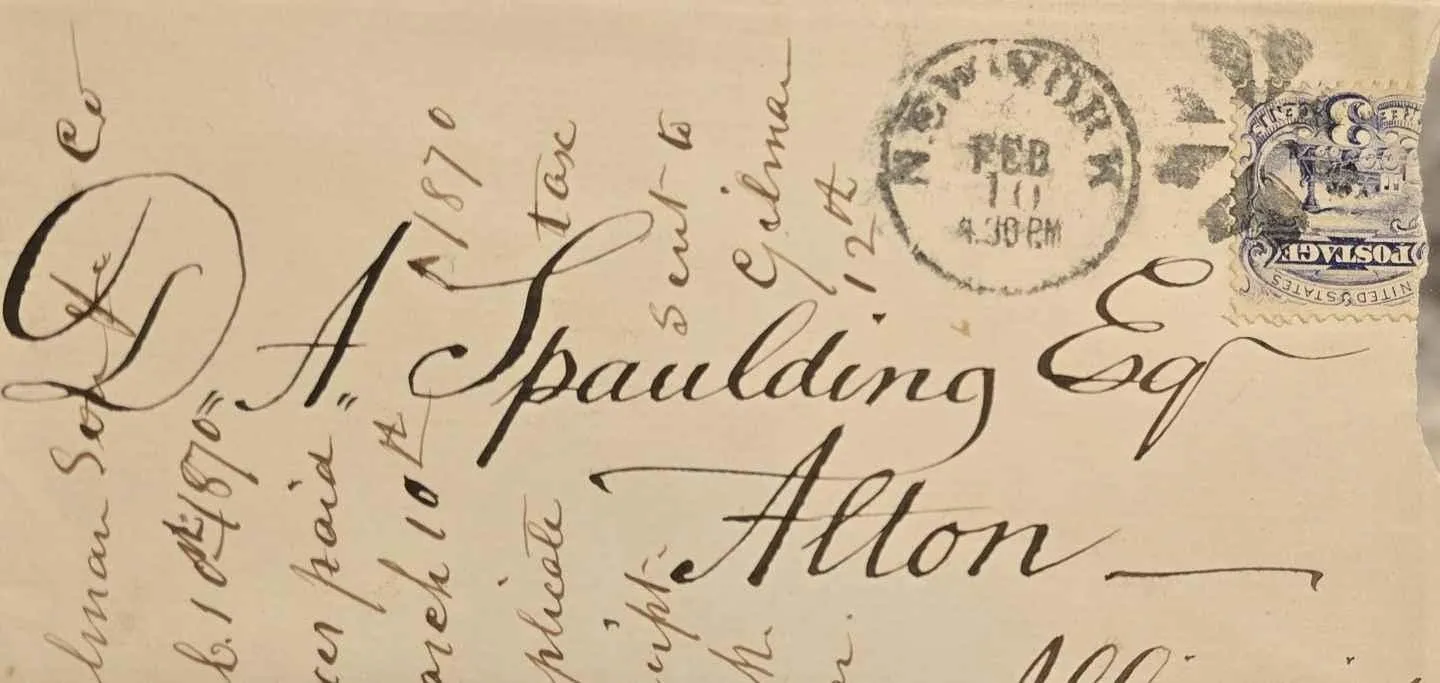 NEW YORK
FEB
10
4.30 PM
3
POSTAGE
UNITED STATES
D,, A,, Spaulding Esq
Alton
lman Son & Co
b. 10th 1870
paid
arch 10th 1870
plicate tax
sent to
Gilman
12th